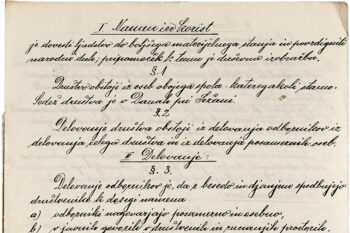 I Namen in Korist
je dovesti ljudstvo do boljšega materijelnega stanja in povzdigniti
narodno delo, pripomoček k temu je duševna izobrazba,
§. 1.
Društvo obstoji iz oseb obojega spola katerega koli stanu.
Sedež društva je v Danah pri Sežani.
§ 2.
Delovanje društva obstoji iz delovanja odbornikov iz
delovanja celega društva in iz delovanja posameznih oseb.
II Delovanje:
§. 3.
Delovanje odbornikov je, da z besedo in djanjem spodbujajo
društvenike k dosegi namena
a) odborniki nagovarjajo posamezno in osebno,
b) v javnite govorite v društvenih in zunanjih prostorih,